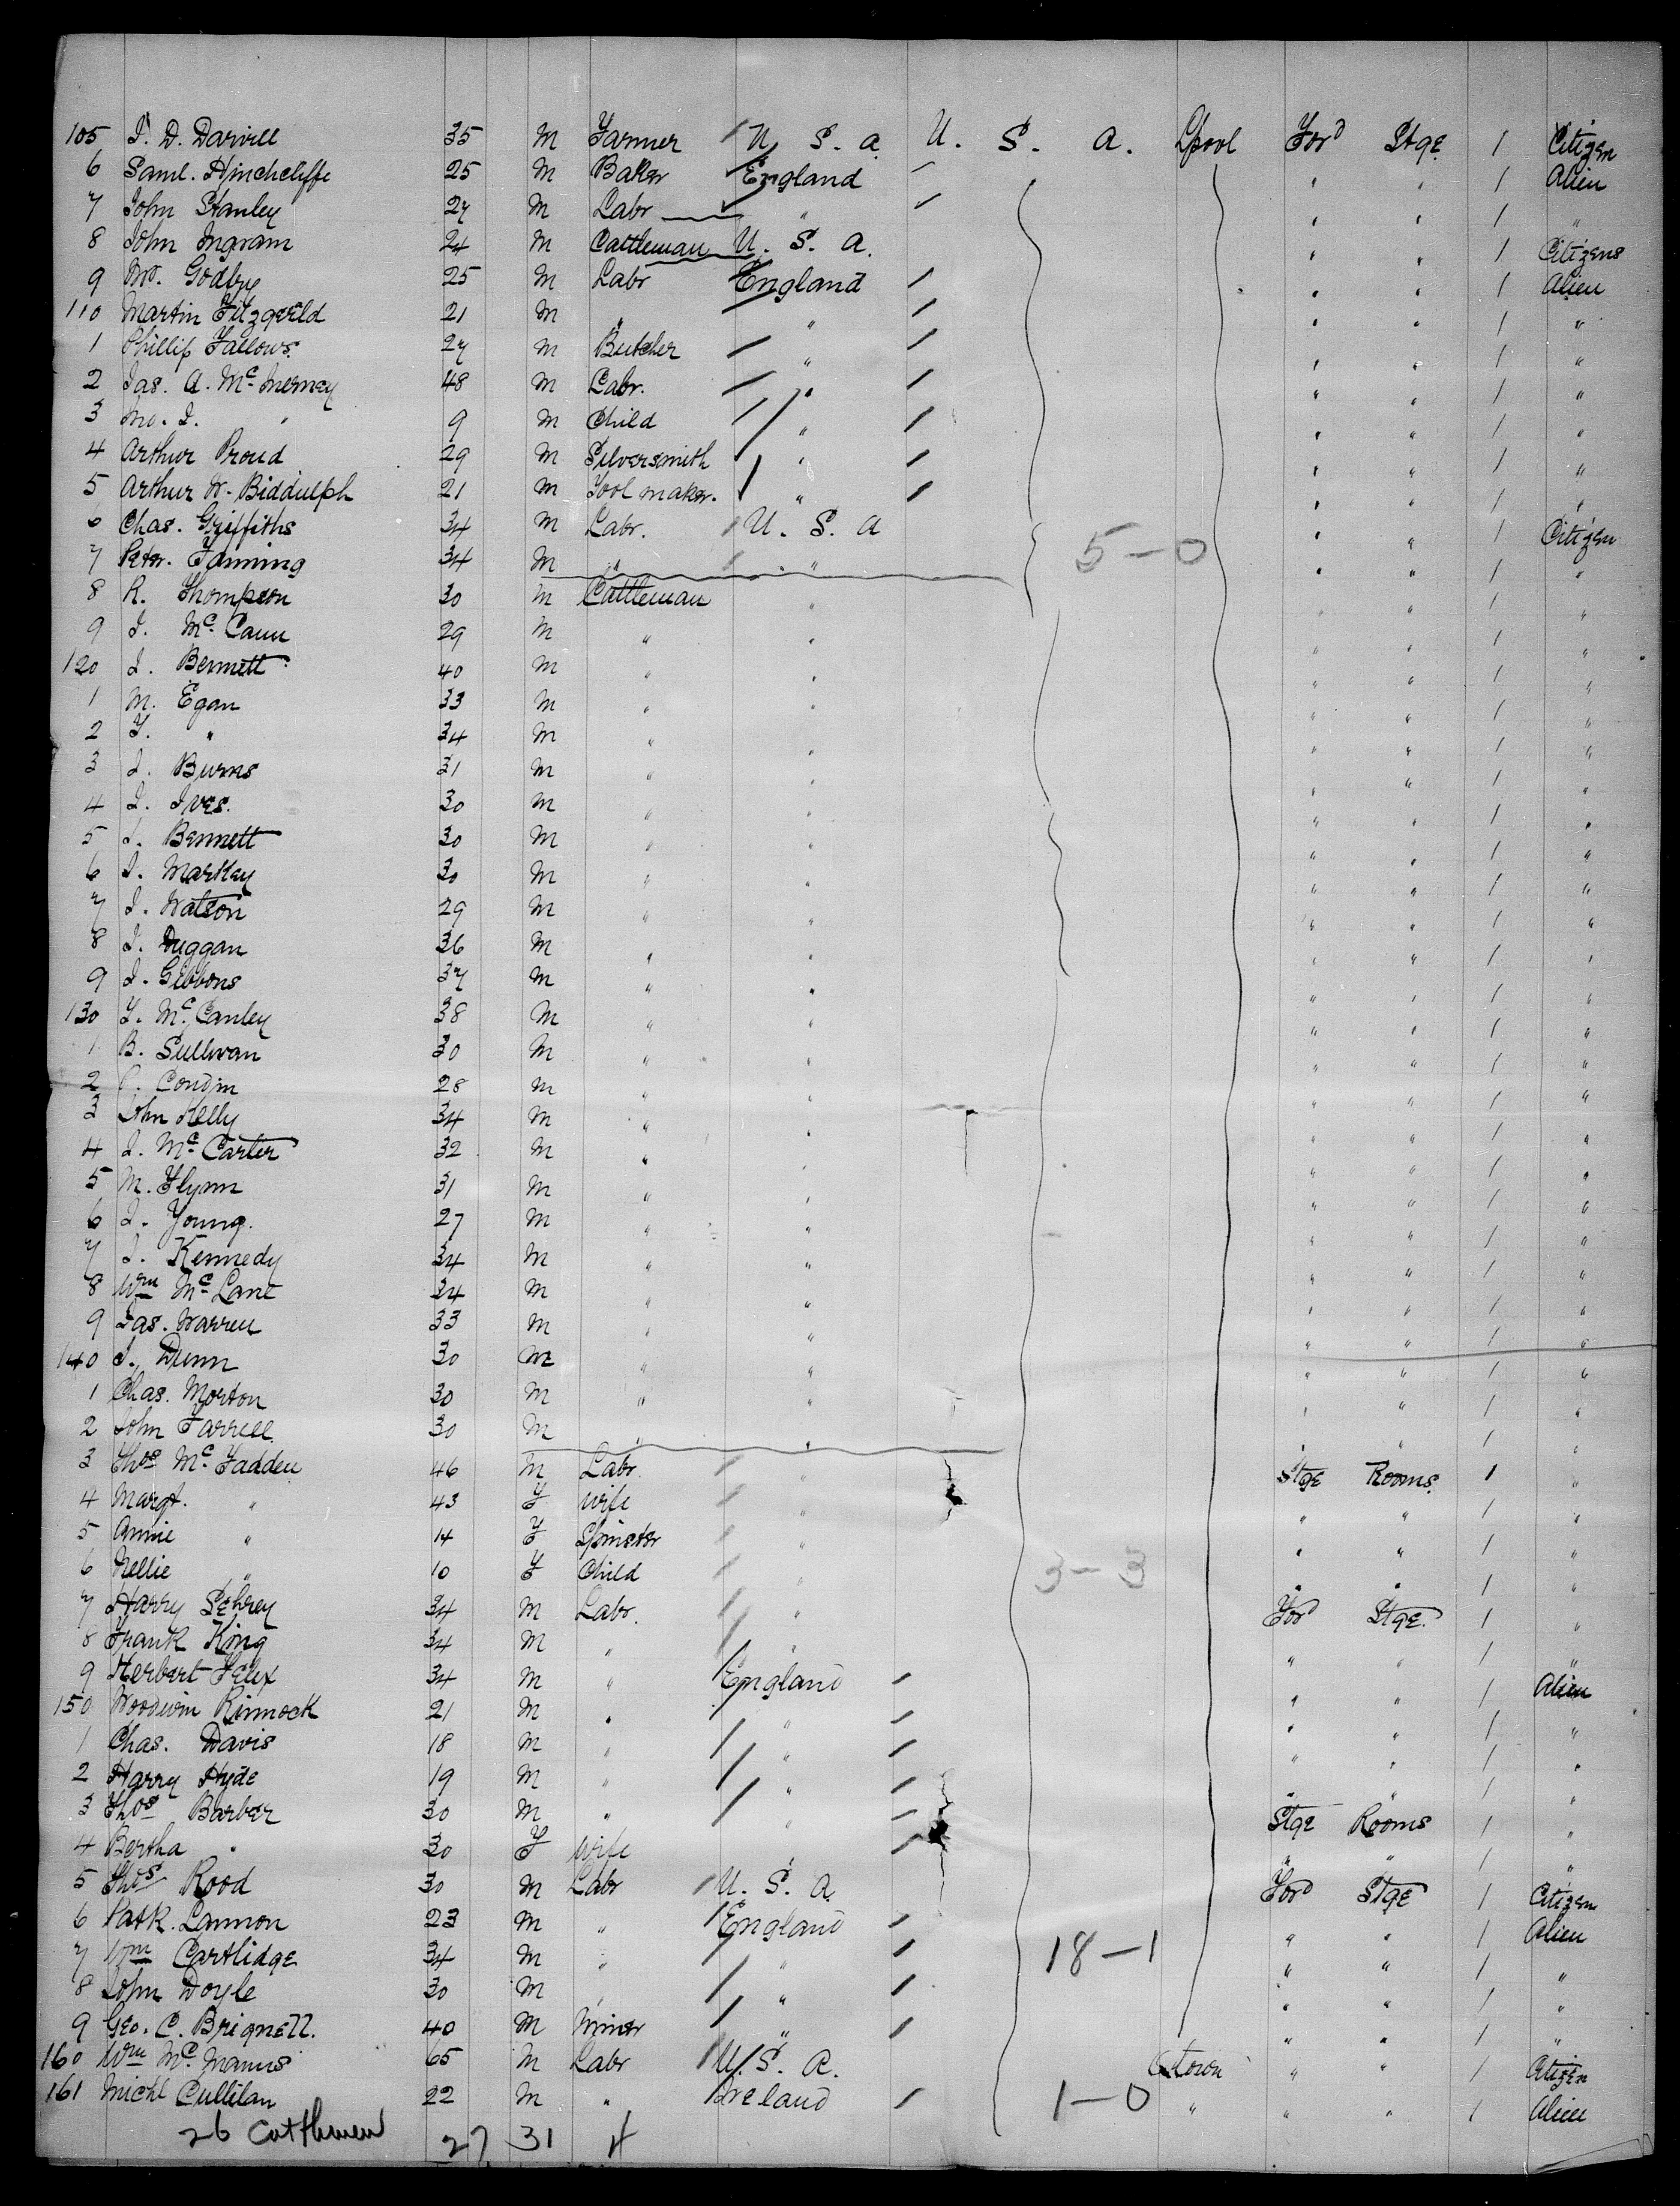 105 J. D. Darvill 35 M Farmer U. S. A. U. S. A. Lpool For'd Stge 1 Citizen
6 Saml. Hinchcliffe 25 M Baker England " " 1 Alien
7 John Stanley 27 M Labr " " " 1 "
8 John Ingram 24 M Cattleman U. S. A. " " 1 Citizens
9 Wm. Godby 25 M Labr England " " 1 Alien
110 Martin Fitzgerld 21 M " " " " 1 "
1 Phillip Fallows. 27 M Butcher " " " 1 "
2 Jas. A. McInerney 48 M Labr. " " " 1 "
3 Jno. J. " 9 M Child " " " 1 "
4 Arthur Proud 29 M Silversmith " " " 1 "
5 Arthur W. Biddulph 21 M Tool maker. " " " 1 "
6 Chas. Griffiths 34 M Labr. U. S. A 5-0 " " 1 Citizen
7 Peter. Fanning 34 M " " " " 1 "
8 R. Thompson 30 M Cattleman " " " 1 "
9 J. McCann 29 M " " " " 1 "
120 J. Bennett 40 M " " " " 1 "
1 M. Egan 33 M " " " " 1 "
2 T. " 34 M " " " " 1 "
3 J. Burns 31 M " " " " 1 "
4 J. Ives. 30 M " " " " 1 "
5 J. Bennett 30 M " " " " 1 "
6 J. Markey 30 M " " " " 1 "
7 J. Watson 29 M " " " " 1 "
8 J. Duggan 36 M " " " " 1 "
9 J. Gibbons 37 M " " " " 1 "
130 T. McCanley 38 M " " " " 1 "
1 B. Sullivan 30 M " " " " 1 "
2 Condin 28 M " " " " 1 "
3 John Kelly 34 M " " " " 1 "
4 J. McCarter 32 M " " " " 1 "
5 M. Flynn 31 M " " " " 1 "
6 J. Young. 27 M " " " " 1 "
7 J. Kennedy 34 M " " " " 1 "
8 Wm McLane 24 M " " " " 1 "
9 Jas. Warren 33 M " " " " 1 "
140 J. Dunn 30 M " " " " 1 "
1 Chas. Morton 30 M " " " " 1 "
2 John Farrell 30 M " " " " 1 "
3 Thos McFadden 46 M Labr. " Stge Rooms. 1 "
4 Margt. " 43 F Wife " " " 1 "
5 Annie " 14 F Spinster " " " 1 "
6 Nellie " 10 F Child " 3-3 " " 1 "
7 Harry Sehrey 34 M Labr. " For'd Stge. 1 "
8 Frank King 34 M " " " " 1 "
9 Herbert Felix 34 M " England " " 1 Alien
150 Woodwin Rinnock 21 M " " " " 1 "
1 Chas. Davis 18 M " " " " 1 "
2 Harry Hyde 19 M " " " " 1 "
3 Thos Barber 30 M " " Stge Rooms 1 "
4 Bertha " 30 F Wife " " " 1 "
5 Thos Rood 30 M Labr U. S. A. For'd Stge 1 Citizen
6 Patk. Lannon 23 M " England " " 1 Alien
7 Wm Cartlidge 34 M " " 18-1 " " 1 "
8 John Doyle 30 M " " " " 1 "
9 Geo. C. Brignell. 40 M Miner " " " 1 "
160 Wm McManus 65 M Labr U. S. A. Qtown " " 1 Citizen
161 Michl Cullilan 22 M " Ireland 1-0 " " " 1 Alien
26 Cattlemen 27 31 4